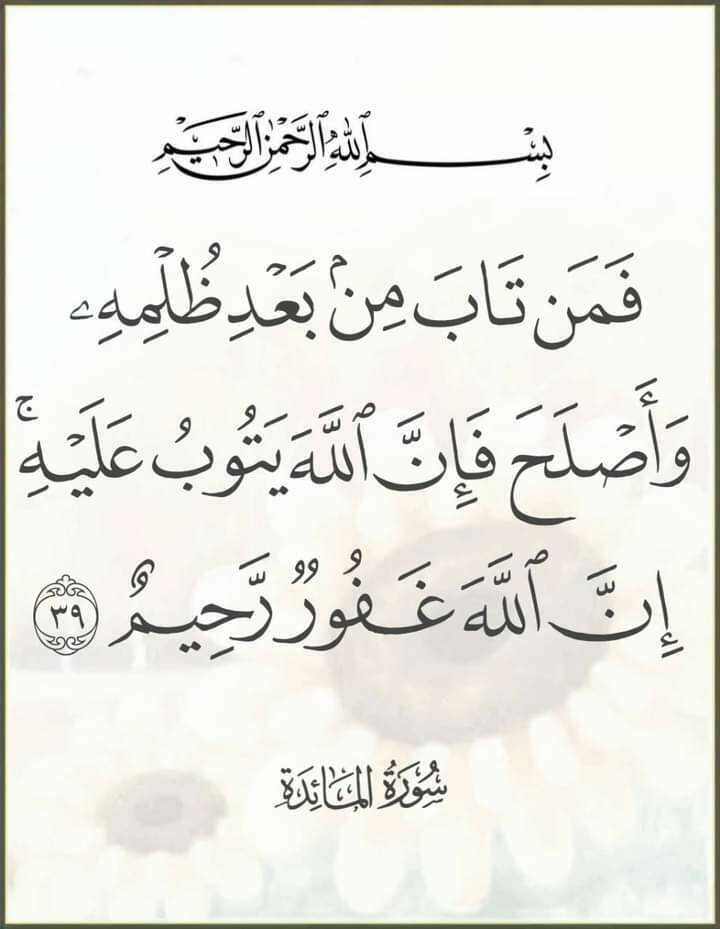 بِسْمِ ٱللَّهِ ٱلرَّحْمَٰنِ ٱلرَّحِيمِ
فَمَن تَابَ مِنۢ بَعْدِ ظُلْمِهِۦ
وَأَصْلَحَ فَإِنَّ ٱللَّهَ يَتُوبُ عَلَيْهِۚ
إِنَّ ٱللَّهَ غَفُورٌ رَّحِيمٌ ٣٩
سُورَةُ المَائِدَةِ